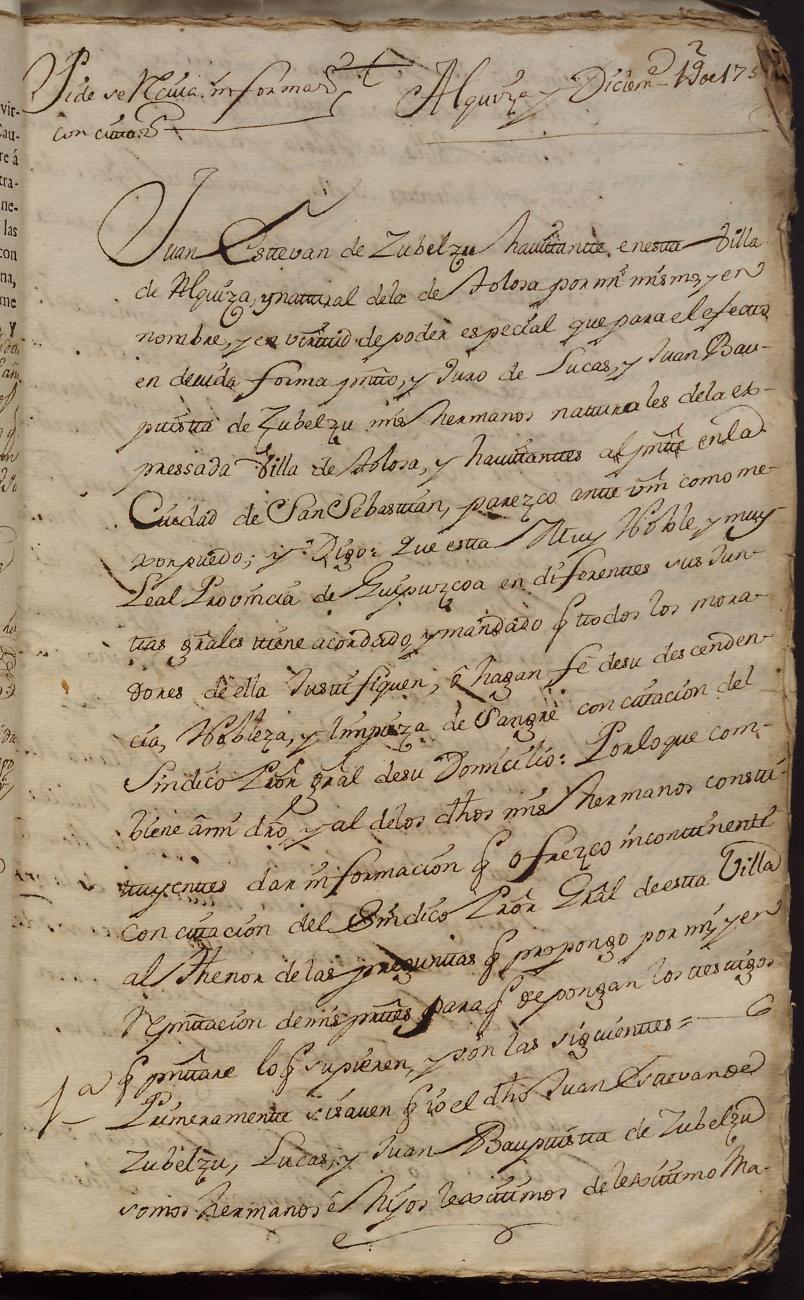 Pide se Reciva informaon
con citaon
Alquiza y Diciem 19 de 175
Juan Estevan de Zubelzu havittantte en esta Villa
de Alquiza, y natural dela de Tolosa por mi mismo, y en
nombre, y en virttud de poder especial que para el efectto
en devida forma pntto, y Juro de Lucas, y Juan Bau-
puistta de Zubelzu mis hermanos naturales dela ex-
pressada Villa de Tolosa, y havittanttes al pntte en la
Ciudad de San Sebasttian, parezco antte Vm como me-
xor puedo; y Digo: Que estta Muy Noble, y muy
Leal Provincia de Guipuzcoa en diferenttes sus Jun-
ttas grales ttiene acordado, y mandado q ttodos los mora-
dores de ella Justtifiquen, ô hagan fê de su descenden-
cia, Nobleza, y limpieza de Sangre con cittacion del
Sindico Pror gral desu Domicilio: Por lo que com-
biene âmi dro, y al delos dhos mis hermanos consti-
ttuyenttes dar informacion q ofrezco incontinentti
con cittacion del Sindico Pror Gral de estta Villa
al Thenor de las pregunttas q propongo por mi, y en
Repnttacion demis parttes para q depongan los testtigos
q pnttare lo q supieren, y son las siguienttes =
1a Primeramente si saven q Yo el dho Juan Estevan de
Zubelzu, Lucas, y Juan Baupuistta de Zubelzu
somos hermanos ê hijos lexittimos de lexittimo Ma-